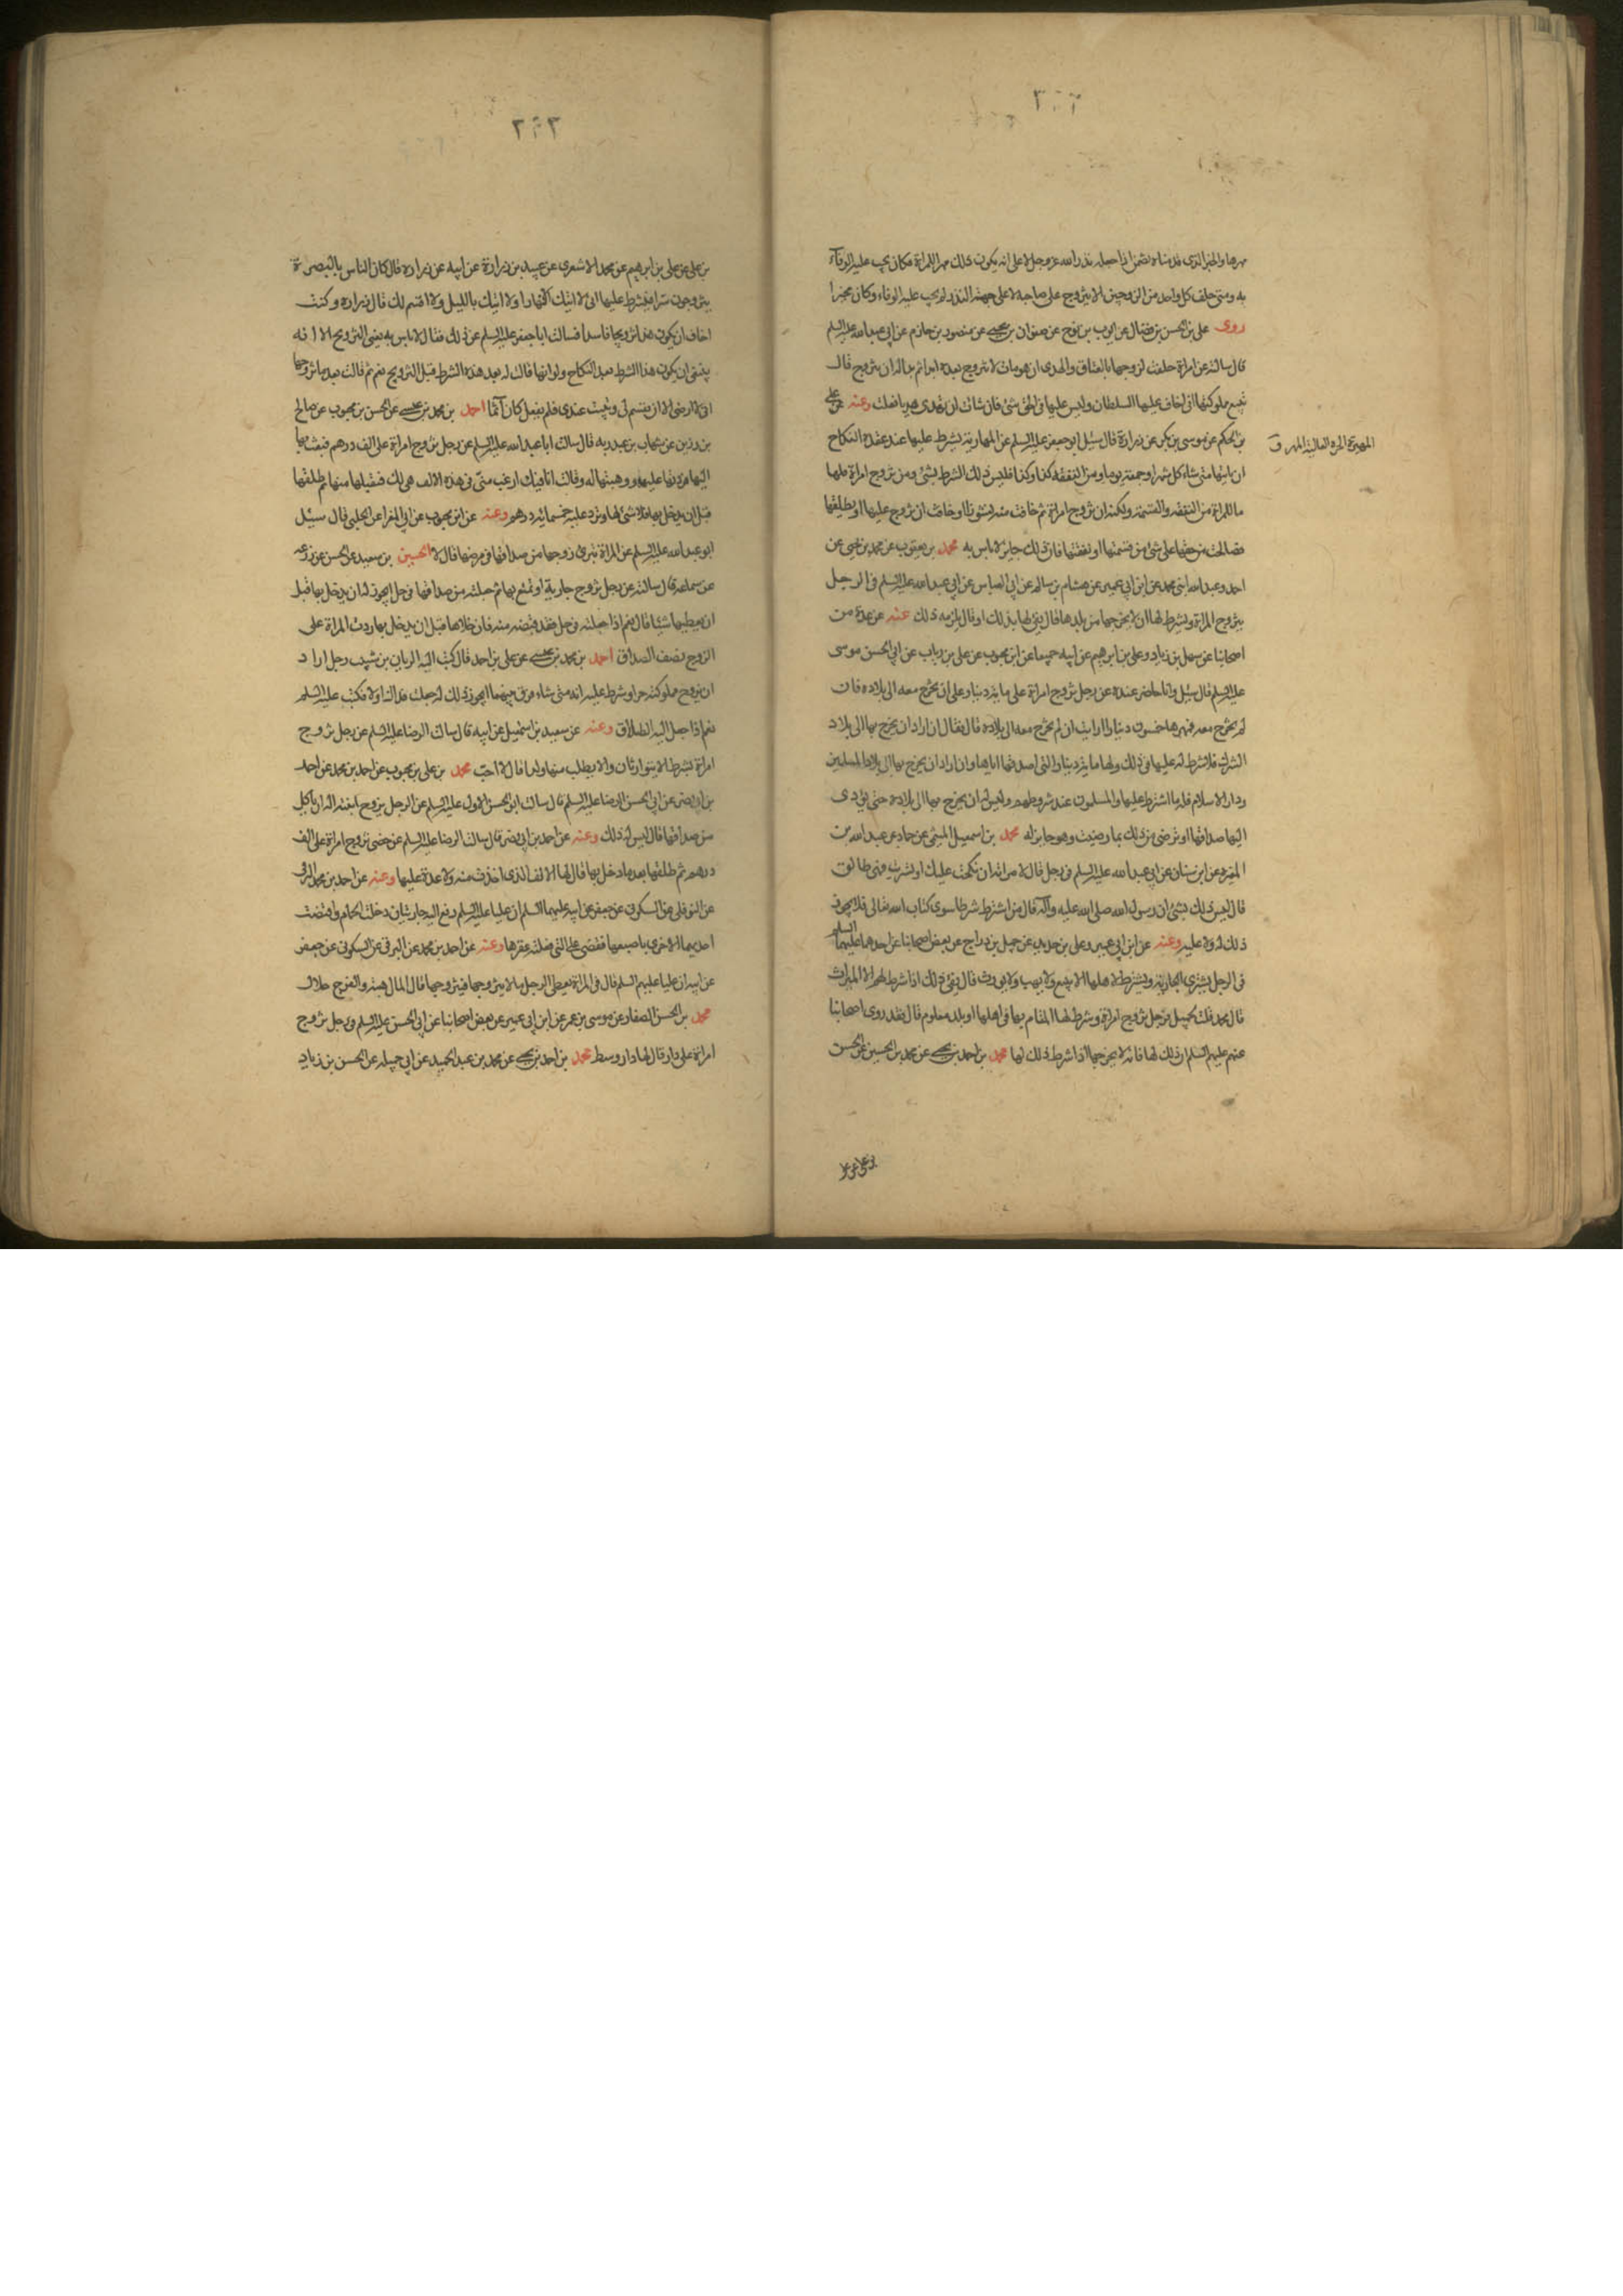 مهرها والخبر الذى قدمناه تضمن اذا جعله نذرا لله عز وجل لا على انه يكون ذلك مهر المراة فكان يجب عليه الوفاء
به ومتى حلف كل واحد من الزوجين الا يتزوج على صاحبه لا على جهة النذر لم يجب عليه الوفاء وكان مخيرا
روى على بن الحسن بن فضال عن ايوب بن نوح عن صفوان بن يحيى عن منصور بن حازم عن ابى عبد الله عليه السلم
قال سالته عن امراة حلفت لزوجها بالعتاق والهدى ان هو مات لا تتزوج بعده ابدا ثم بدا لها ان تتزوج فقال
تبيع مملوكتها انى اخاف عليها السلطان وليس عليها فى الحق شئ فان شاءت ان تهدى هديا فعلت وعنه عن على
بن الحكم عن موسى بن بكر عن زرارة قال سئل ابو جعفر عليه السلم عن المهارية يشترط عليها عند عقدة النكاح
المهيرة الحرة الغالية المهر ق
ان ياتيها متى شاء كل شهر او جمعة يوما ومن النفقة كذا وكذا فليس ذلك الشرط بشئ ومن تزوج امراة فلها
ما للمراة من النفقه والقسمة ولكنه ان تزوج امراة ثم خافت منه نشوزا او خافت ان يتزوج عليها او يطلقها
فصالحت من حقها على شئ من قسمتها او نفقتها فان ذلك جايز لا باس به محمد بن يعقوب عن محمد بن يحيى عن
احمد وعبد الله ابنى محمد عن ابن ابى عمير عن هشام بن سالم عن ابى العباس عن ابى عبد الله عليه السلم فى الرجل
يتزوج المراة ويشترط لها الا يخرجها من بلدها قال يفى لها بذلك او قال يلزمه ذلك عنه عن عدة من
اصحابنا عن سهل بن زياد وعلى بن ابرهيم عن ابيه جميعا عن ابن محبوب عن على بن رياب عن ابى الحسن موسى
عليه السلم قال سئل وانا حاضر عنده عن رجل تزوج امراة على ماية دينار على ان تخرج معه الى بلاده فان
لم تخرج معه فمهرها خمسون دينارا ارايت ان لم تخرج معه الى بلاده قال فقال ان اراد ان يخرج بها الى بلاد
الشرك فلا شرط له عليها فى ذلك ولها ماية دينار التى اصدقها اياها وان اراد ان يخرج بها الى بلاد المسلمين
ودار الاسلام فله ما اشترط عليها والمسلمون عند شروطهم وليس له ان يخرج بها الى بلاده حتى يؤدى
اليها صداقها او ترضى من ذلك بما رضيت وهو جايز له محمد بن اسمعيل الميثمى عن حماد عن عبد الله بن
المغيرة عن ابن سنان عن ابى عبد الله عليه السلم فى رجل قال لامراته ان نكحت عليك او تسريت فهى طالق
قال ليس ذلك بشئ ان رسول الله صلى الله عليه وآله قال من اشترط شرطا سوى كتاب الله تعالى فلا يجوز
ذلك له ولا عليه وعنه عن ابن ابى عمير وعلى بن حديد عن جميل بن دراج عن بعض اصحابنا عن احدهما عليهما السلم
فى الرجل يشترى الجارية ويشترط لاهلها الا يبيع ولا يهب ولا يورث قال يفى ذلك اذا شرط لهم الا الميراث
قال محمد قلت لجميل فرجل تزوج امراة وشرط لها المقام بها فى اهلها او بلد معلوم قال فقد روى اصحابنا
عنهم عليهم السلم ان ذلك لها فانه لا يخرجها اذا شرط ذلك لها محمد بن احمد بن يحيى عن محمد بن الحسين عن الحسن
بن على عن على
بن على عن على بن ابرهيم عن محمد الاشعرى عن عبيد بن زرارة عن ابيه عن زرارة قال كان الناس بالبصرة
يتزوجون سرا فيشترط عليها انى لا اتيك الا نهارا ولا اتيك بالليل ولا اقسم لك قال زرارة وكنت
اخاف ان يكون هذا تزويجا فاسدا فسالت ابا جعفر عليه السلم عن ذلك فقال لا باس به يعنى التزويج الا انه
ينبغى ان يكون هذا الشرط بعد النكاح ولو انها قالت له بعد هذه الشرط قبل التزويج نعم ثم قالت بعد ما تزوجها
انى لا ارضى الا ان تقسم لى وتبيت عندى فلم يفعل كان آثما احمد بن محمد بن عيسى عن الحسن بن محبوب عن صالح
بن رزين عن شهاب بن عبد ربه قال سالت ابا عبد الله عليه السلم عن رجل تزوج امراة على الف درهم فبعث بها
اليها فردتها عليه ووهبتها له وقالت انا فيك ارغب منى فى هذه الالف هى لك فتقبلها منها ثم طلقها
قبل ان يدخل بها قال لا شئ لها وترد عليه خمسماية درهم وعنه عن ابن محبوب عن ابى المغرا عن الحلبى قال سئل
ابو عبد الله عليه السلم عن المراة تبرئ زوجها من صداقها فى مرضها قال لا الحسين بن سعيد عن الحسن عن زرعه
عن سماعه قال سالته عن رجل تزوج جارية او تمتع بها ثم جعلته من صداقها فى حل ايجوز له ان يدخل بها قبل
ان يعطيها شيئا قال نعم اذا جعلته فى حل فقد قبضته منه فان خلاها قبل ان يدخل بها ردت المراة على
الزوج نصف الصداق احمد بن محمد بن عيسى عن على بن احمد قال كتب اليه الريان بن شبيب رجل اراد
ان يزوج مملوكته حرا وشرط عليه انه متى شاء فرق بينهما ايجوز ذلك له جعلت فداك او لا فكتب عليه السلم
نعم اذا جعل اليه الطلاق وعنه عن سعيد بن اسمعيل عن ابيه قال سالت الرضا عليه السلم عن رجل تزوج
امراة بشرط الا يتوارثان والا يطلب منها ولدا قال لا احب محمد بن على بن محبوب عن احمد بن محمد عن احمد
بن ابى نصر عن ابى الحسن الرضا عليه السلم قال سالت ابو الحسن الاول عليه السلم عن الرجل يزوج ابنته اله ان ياكل
من صداقها قال ليس له ذلك وعنه عن احمد بن ابى نصر قال سالت الرضا عليه السلم عن خصى تزوج امراة على الف
درهم ثم طلقها بعد ما دخل بها قال لها الالف الذى اخذت منه ولا عدة عليها وعنه عن احمد بن محمد البرقى
عن النوفلى عن السكونى عن جعفر عن ابيه عليهما السلم ان عليا عليه السلم رفع اليه جاريتان دخلتا الحمام وافتضت
احديهما الاخرى باصبعها فقضى على التى فعلته عقرها وعنه عن احمد بن محمد عن البرقى عن السكونى عن جعفر
عن ابيه ان عليا عليهم السلم قال فى المراة تعطى الرجل مالا يتزوجها فيتزوجها قال المال هبة والفرج حلال
محمد بن الحسن الصفار عن موسى بن عمر عن ابن ابى عمير عن بعض اصحابنا عن ابى الحسن عليه السلم فى رجل تزوج
امراة على دار قال لها دار وسط محمد بن احمد بن يحيى عن محمد بن عبد الحميد عن ابى جميله عن الحسن بن زياد